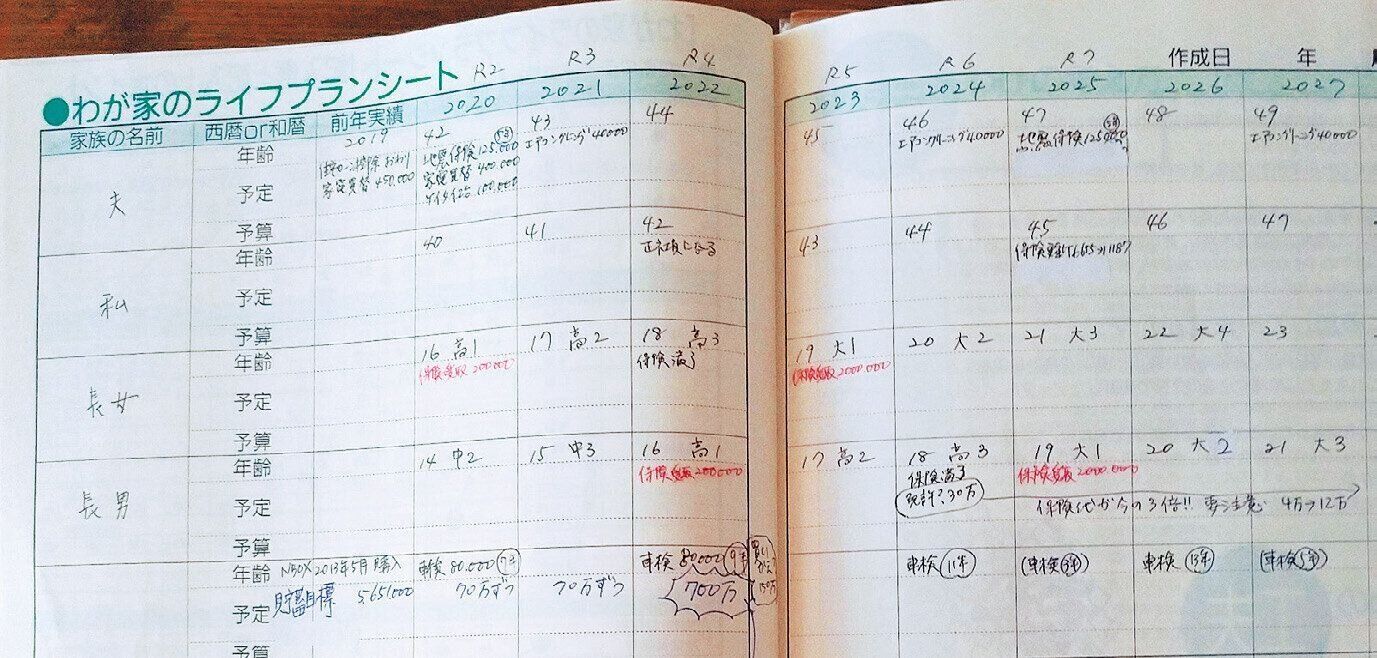 R2 R3 R4 R5 R6 R7
●わが家のライフプランシート
作成日 年
家族の名前 西暦or和暦 前年実績 2020 2021 2022 2023 2024 2025 2026 2027
2019
夫
年齢 42 43 44 45 46 47 48 49
予定
控除 おわり
家電買替 450.000
地震保険 125.000
5年
家電買替 400.000
100.000
エアコンクリーニング 40000
エアコンクリーニング 40000
地震保険 125.000
5年
エアコンクリーニング 40000
予算
私
年齢 40 41 42 43 44 45 46 47
正社員になる
予定
予算
長女
年齢 16 高1 17 高2 18 高3 19 大1 20 大2 21 大3 22 大4 23
保険受取 200000
保険満了
保険受取 2000.000
予定
予算
長男
年齢 14 中2 15 中3 16 高1 17 高2 18 高3 19 大1 20 大2 21 大3
保険受取 200000
保険満了
免許? 30万
保険受取 2000.000
保険代が今の3倍!! 要注意 4万→12万
予定
予算
年齢 NBOX 2013年5月購入 車検 80.000 7年 車検 80.000 9年 車検 11年 (車検 3年) 車検 13年 (車検 5年)
予定 貯蓄目標 5.651.000 70万ずつ 70万ずつ 700万
予算